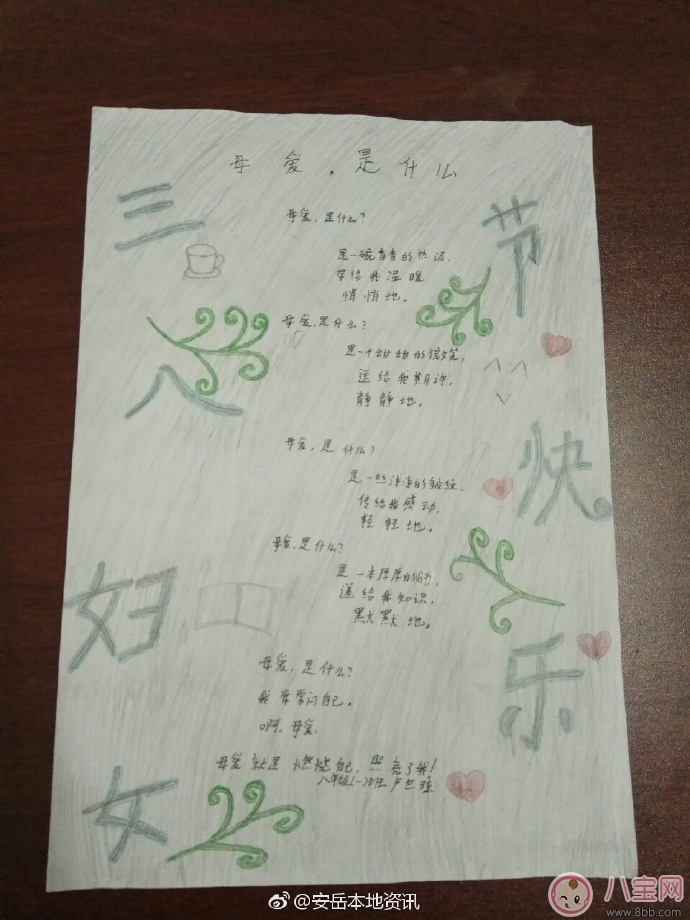 母爱，是什么
三八妇女
节快乐。
母爱，是什么？
是一碗香香的热汤
带给我温暖，
悄悄地。
母爱，是什么？
是一个甜甜的微笑，
送给我期许，
静静地。
母爱，是什么？
是一丝淡淡的皱纹，
传给我感动，
轻轻地。
母爱，是什么？
是一本厚厚的书，
递给我知识，
默默地。
母爱，是什么？
我常常问自己。
啊，母爱，
母爱就是燃烧自己，照亮了我！
八年级(一)班
@安岳本地资讯
八宝网
www.8bb.com